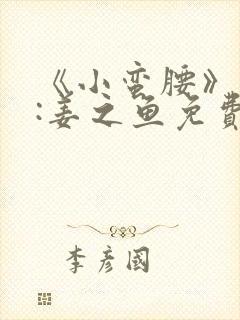 《小蛮腰》
:姜之鱼免費
李彦國